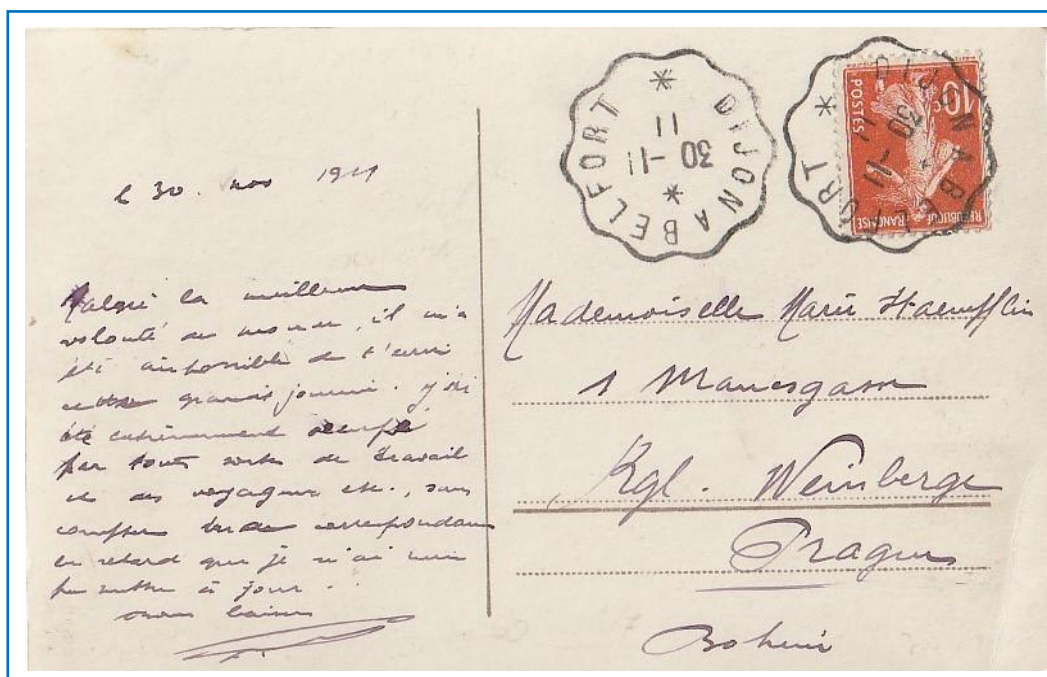 le 30. nov 1911
Malgré la meilleure
volonté du monde, il m'a
été impossible de t'écrire
cette journée. j'ai
été extrêmement occupé
par toutes sortes de travail
et des voyageurs etc., sans
compter correspondance
en retard que je n'ai
pu mettre à jour.
bons baisers
DIJON A BELFORT
30 -11
11
DIJON A BELFORT
30 -11
11
10c
POSTES
REPUBLIQUE FRANÇAISE
Mademoiselle Marie Haemfflin
1 Manesgasse
Kgl. Weinberge
Prague
Bohème